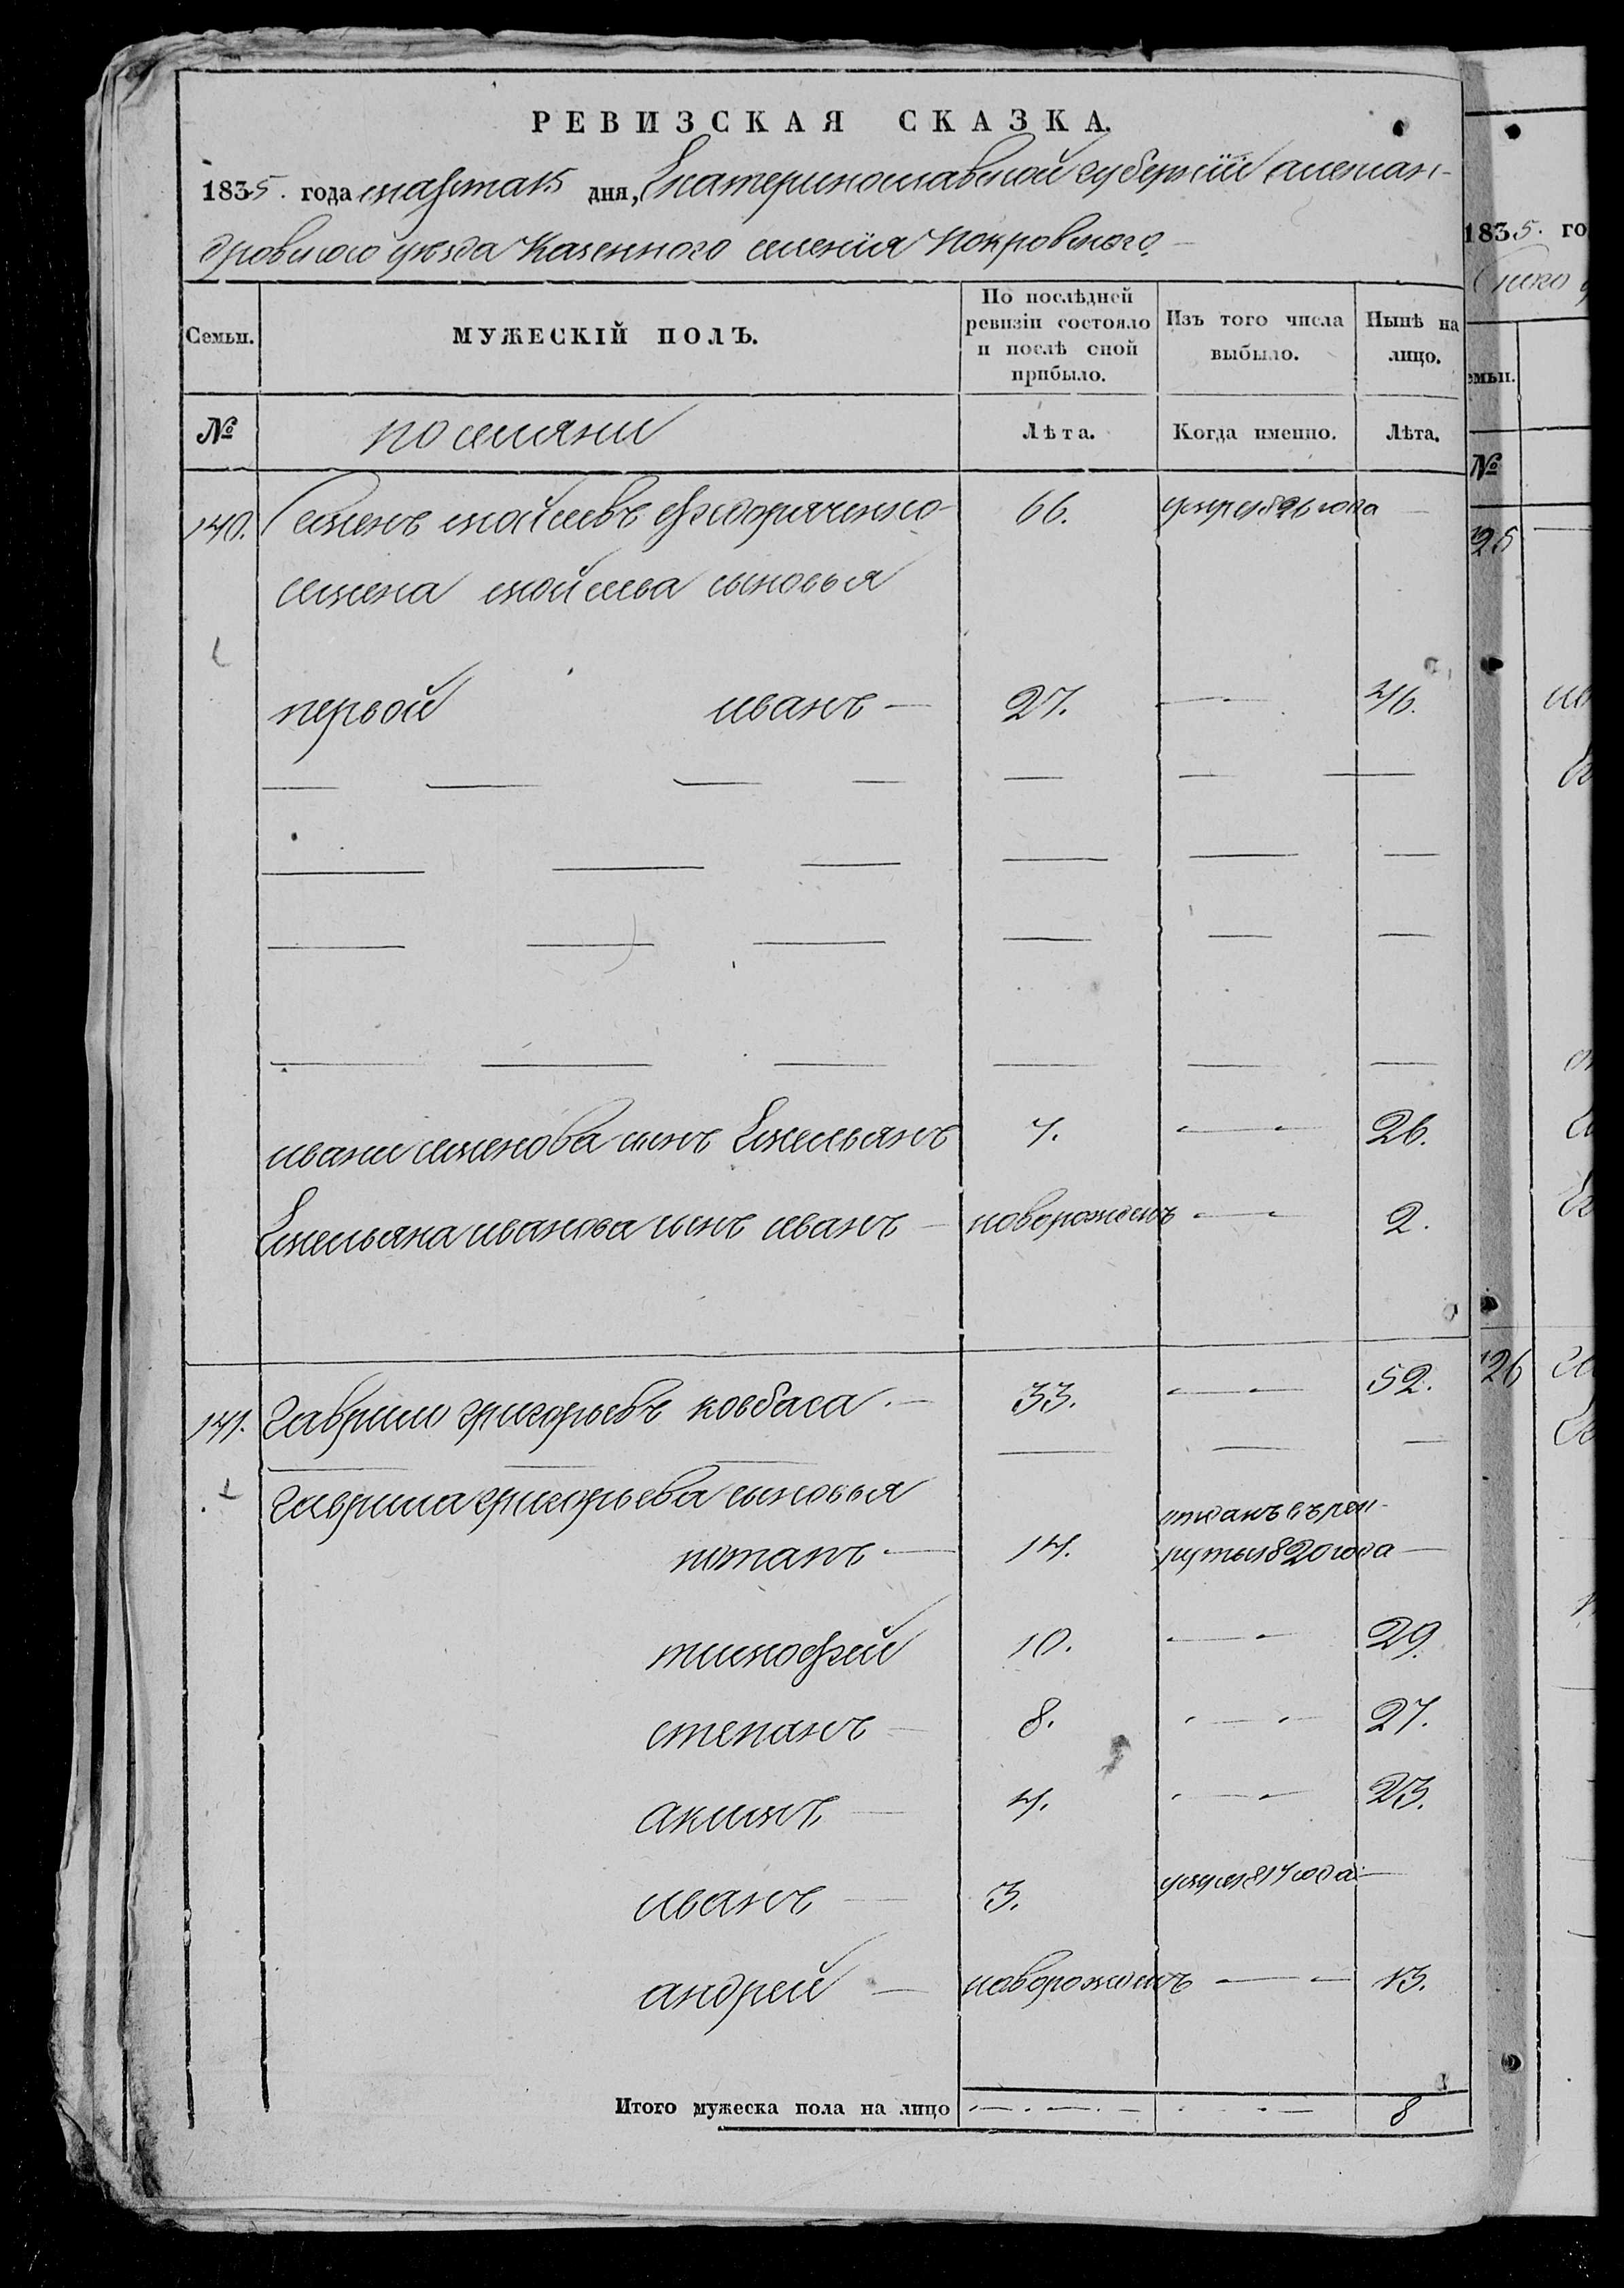 РЕВИЗСКАЯ СКАЗКА.
1835. года марта 15 дня, Екатеринославской губернии александ-
ровского уезда Казенного селения Покровского
Семьи. МУЖЕСКІЙ ПОЛЪ. По послѣдней ревизіи состояло и послѣ оной прибыло. Изъ того числа выбыло. Нынѣ на лицо.
№ поселяни Лѣта. Когда именно. Лѣта.
140. Семенъ мойсевъ 66. умре 1826 года
семена мойсева сыновья
первой иванъ 27. 46.
ивана семенова сынъ Емельянъ 7. 26.
Емельяна иванова сынъ иванъ новорожденъ 2.
141. гаврило григорьевъ ковбаса 33. 52.
гаврила григорьева сыновья
потапъ 14. отданъ въ рек-
руты 1820 года
тимофей 10. 29.
степанъ 8. 27.
акимъ 4. 23.
иванъ 3. умре 1817 года
андрей новорожденъ 13.
Итого мужеска пола на лицо 8
1835. го
№
125
126